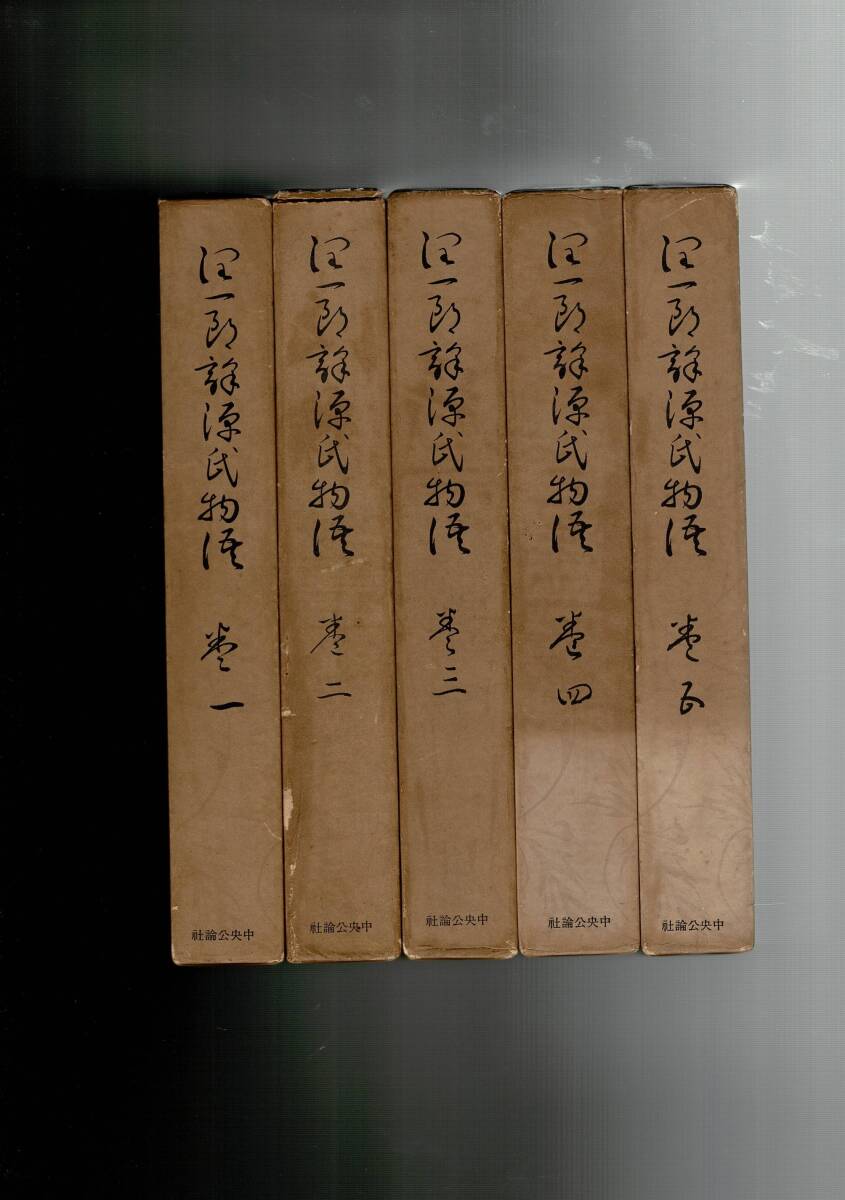 潤一郎譯源氏物語 卷一
中央公論社
潤一郎譯源氏物語 卷二
中央公論社
潤一郎譯源氏物語 卷三
中央公論社
潤一郎譯源氏物語 卷四
中央公論社
潤一郎譯源氏物語 卷五
中央公論社